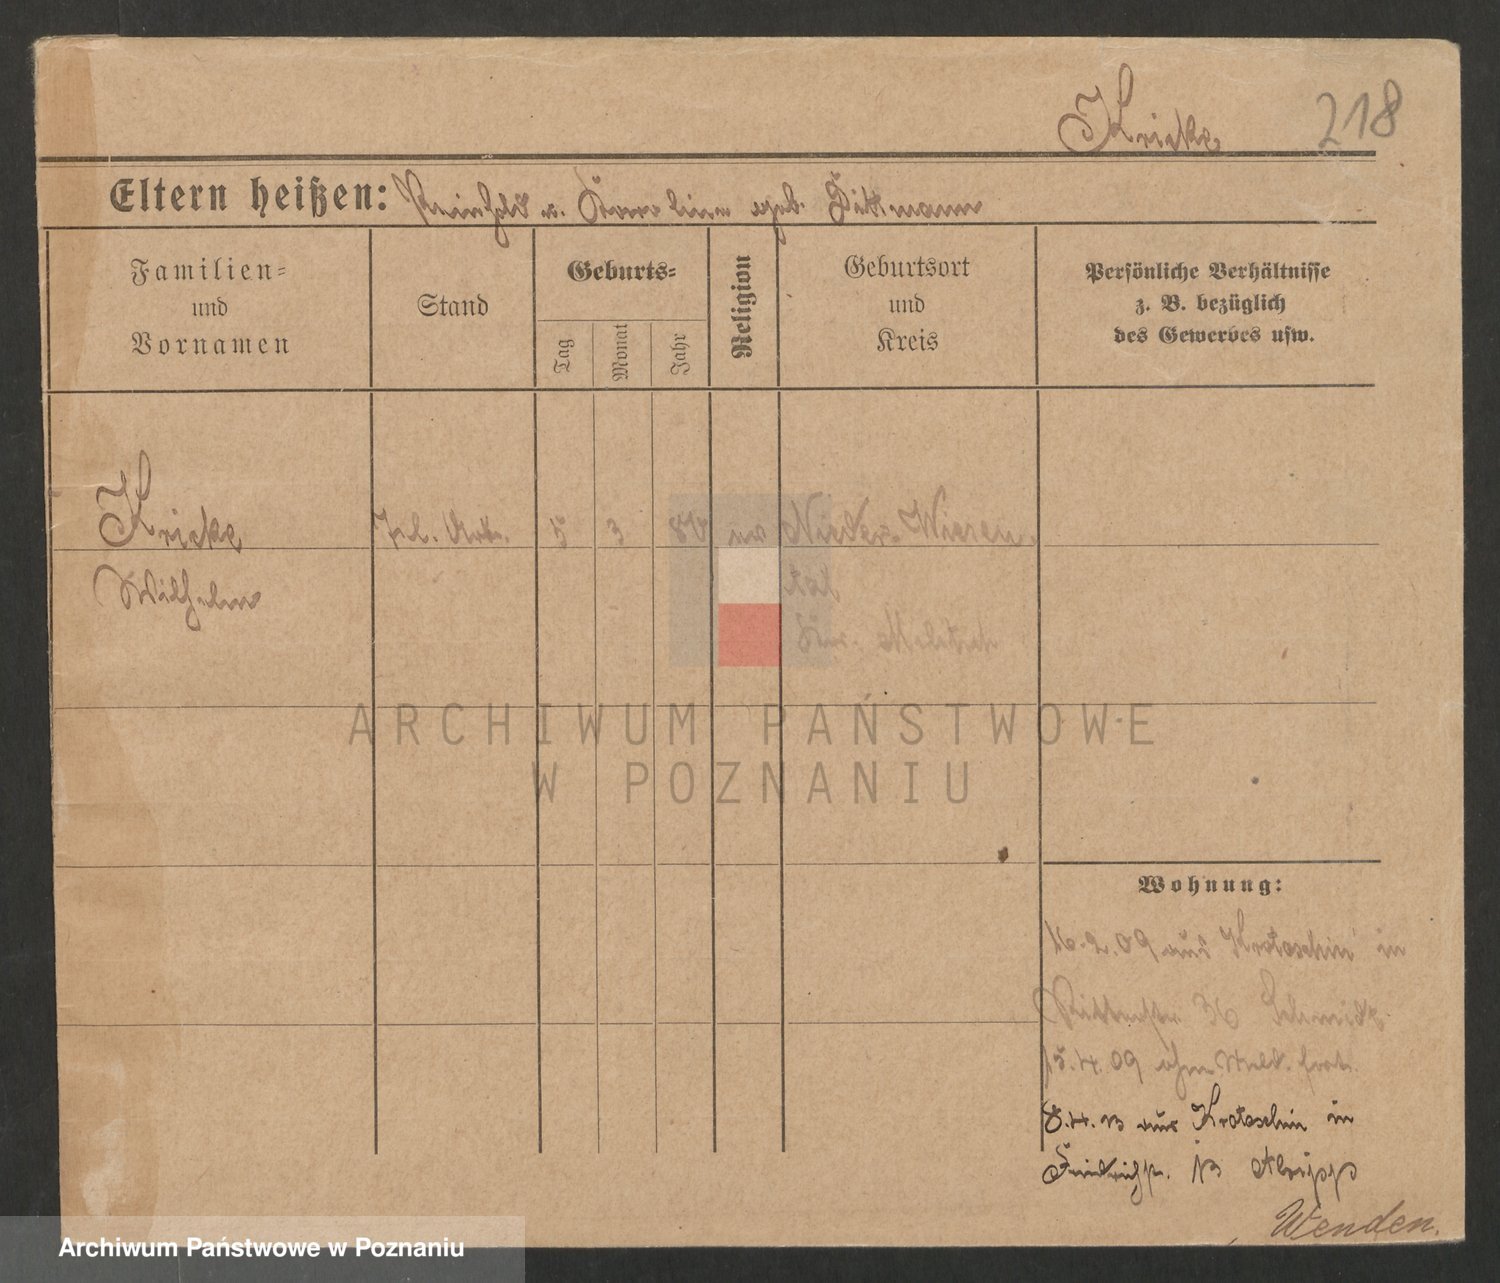 Kricke
218
Eltern heißen: Reinhold u. Karoline geb. Dittmann
Familien=
und
Vornamen
Stand
Geburts=
Tag
Monat
Jahr
Religion
Geburtsort
und
Kreis
Persönliche Verhältnisse
z. B. bezüglich
des Gewerbes usw.
Kricke
Wilhelm
5 3 ev Nieder-Wiesen
tal
Kr. Militsch
ARCHIWUM PAŃSTWOWE
W POZNANIU
Wohnung:
16.2.09 aus Krotoschin in
Ritterstr 36 Schmidt
15.4.09 ohne Meld. fort.
8.4.13 aus Krotoschin in
Friedrichstr. 13
Wenden.
Archiwum Państwowe w Poznaniu